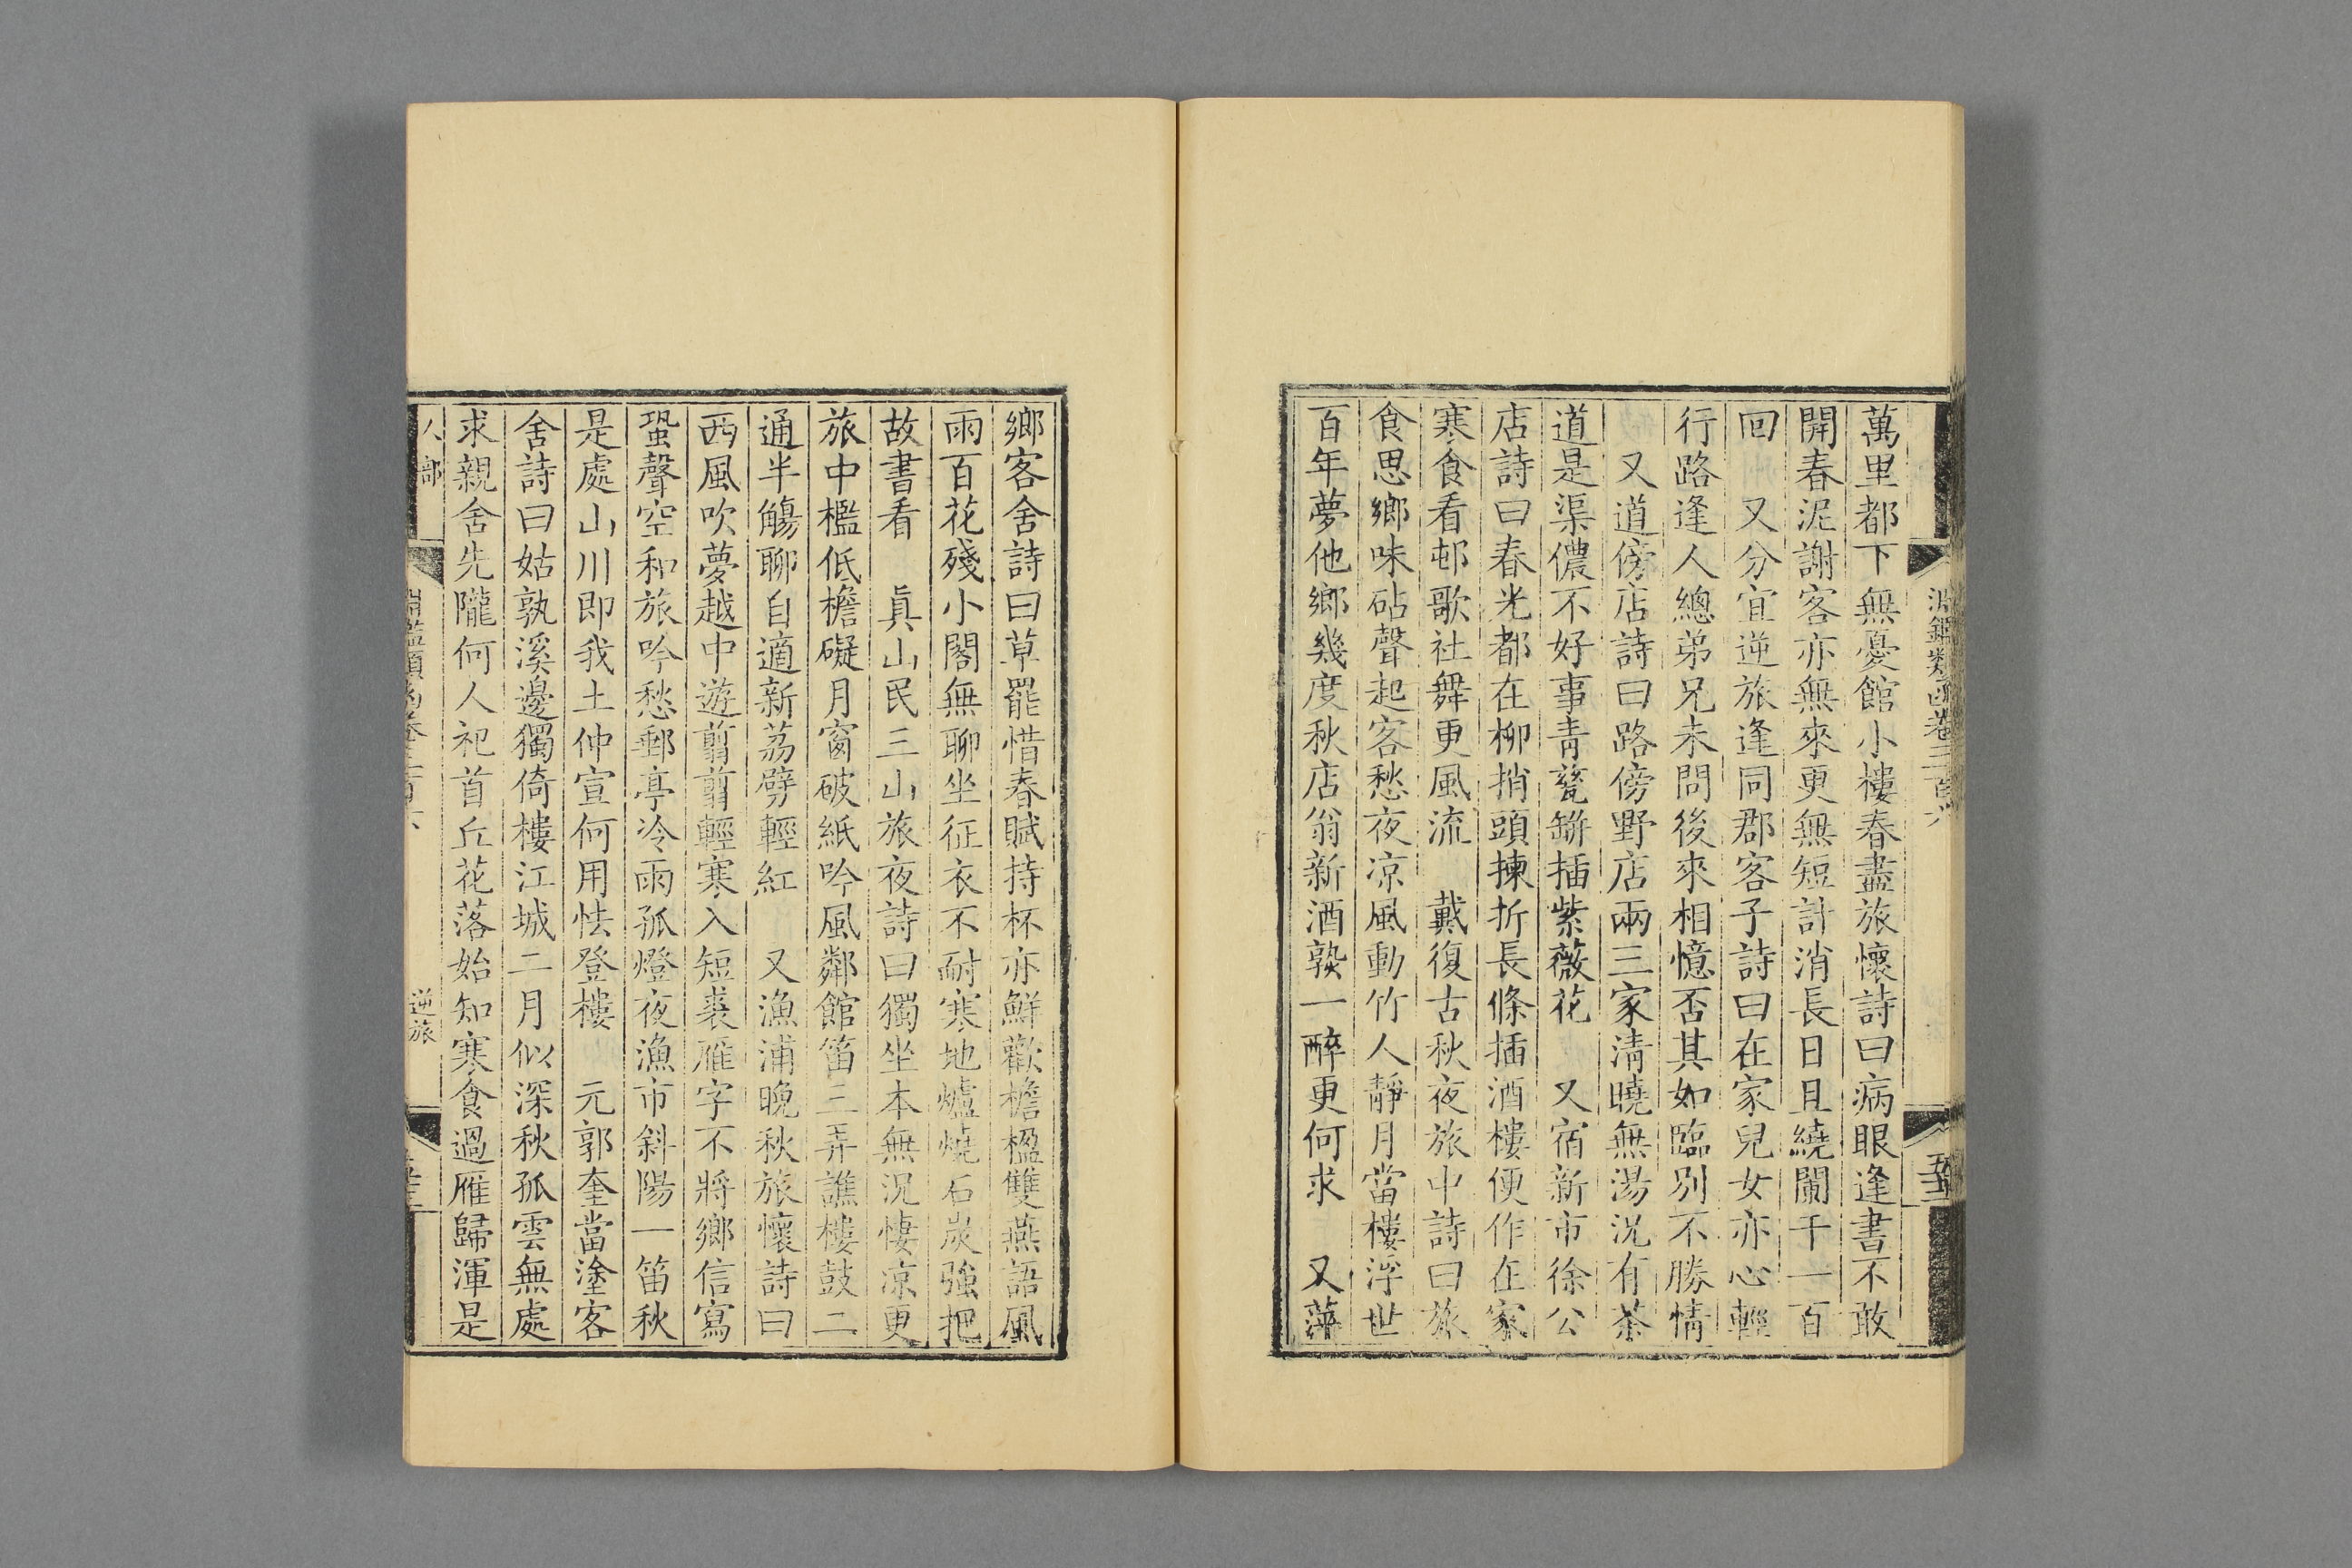 淵鑑類函卷三百六
萬里都下無憂館小樓春盡旅懷詩曰病眼逢書不敢
開春泥謝客亦無來更無短計消長日且繞闌干一百
回　又分宜逆旅逢同郡客子詩曰在家兒女亦心輕
行路逢人總弟兄未問後來相憶否其如臨別不勝情
又道傍店詩曰路傍野店兩三家清曉無湯況有茶
道是渠儂不好事青甆缾插紫薇花　又宿新市徐公
店詩曰春光都在柳捎頭揀折長條插酒樓便作在家
寒食看邨歌社舞更風流　戴復古秋夜旅中詩曰旅
食思鄉味砧聲起客愁夜凉風動竹人靜月當樓浮世
百年夢他鄉幾度秋店翁新酒熟一醉更何求　又萍
鄉客舍詩曰草罷惜春賦持杯亦鮮歡檐楹雙燕語風
雨百花殘小閣無聊坐征衣不耐寒地爐燒石炭強把
故書看　真山民三山旅夜詩曰獨坐本無況悽凉更
旅中檻低檐礙月窗破紙吟風鄰館笛三弄譙樓鼓二
通半觴聊自適新荔劈輕紅　又漁浦晚秋旅懷詩曰
西風吹夢越中遊翦翦輕寒入短裘雁字不將鄉信寫
蛩聲空和旅吟愁郵亭冷雨孤燈夜漁市斜陽一笛秋
是處山川即我土仲宣何用怯登樓　元郭奎當塗客
舍詩曰姑孰溪邊獨倚樓江城二月似深秋孤雲無處
求親舍先隴何人祀首丘花落始知寒食過雁歸渾是
人部　淵鑑類函卷三百六　逆旅